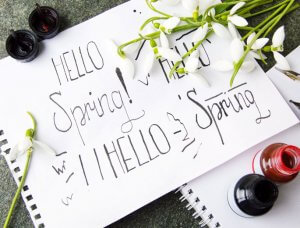 HELLO
Spring!
HELLO
HELLO
Spring